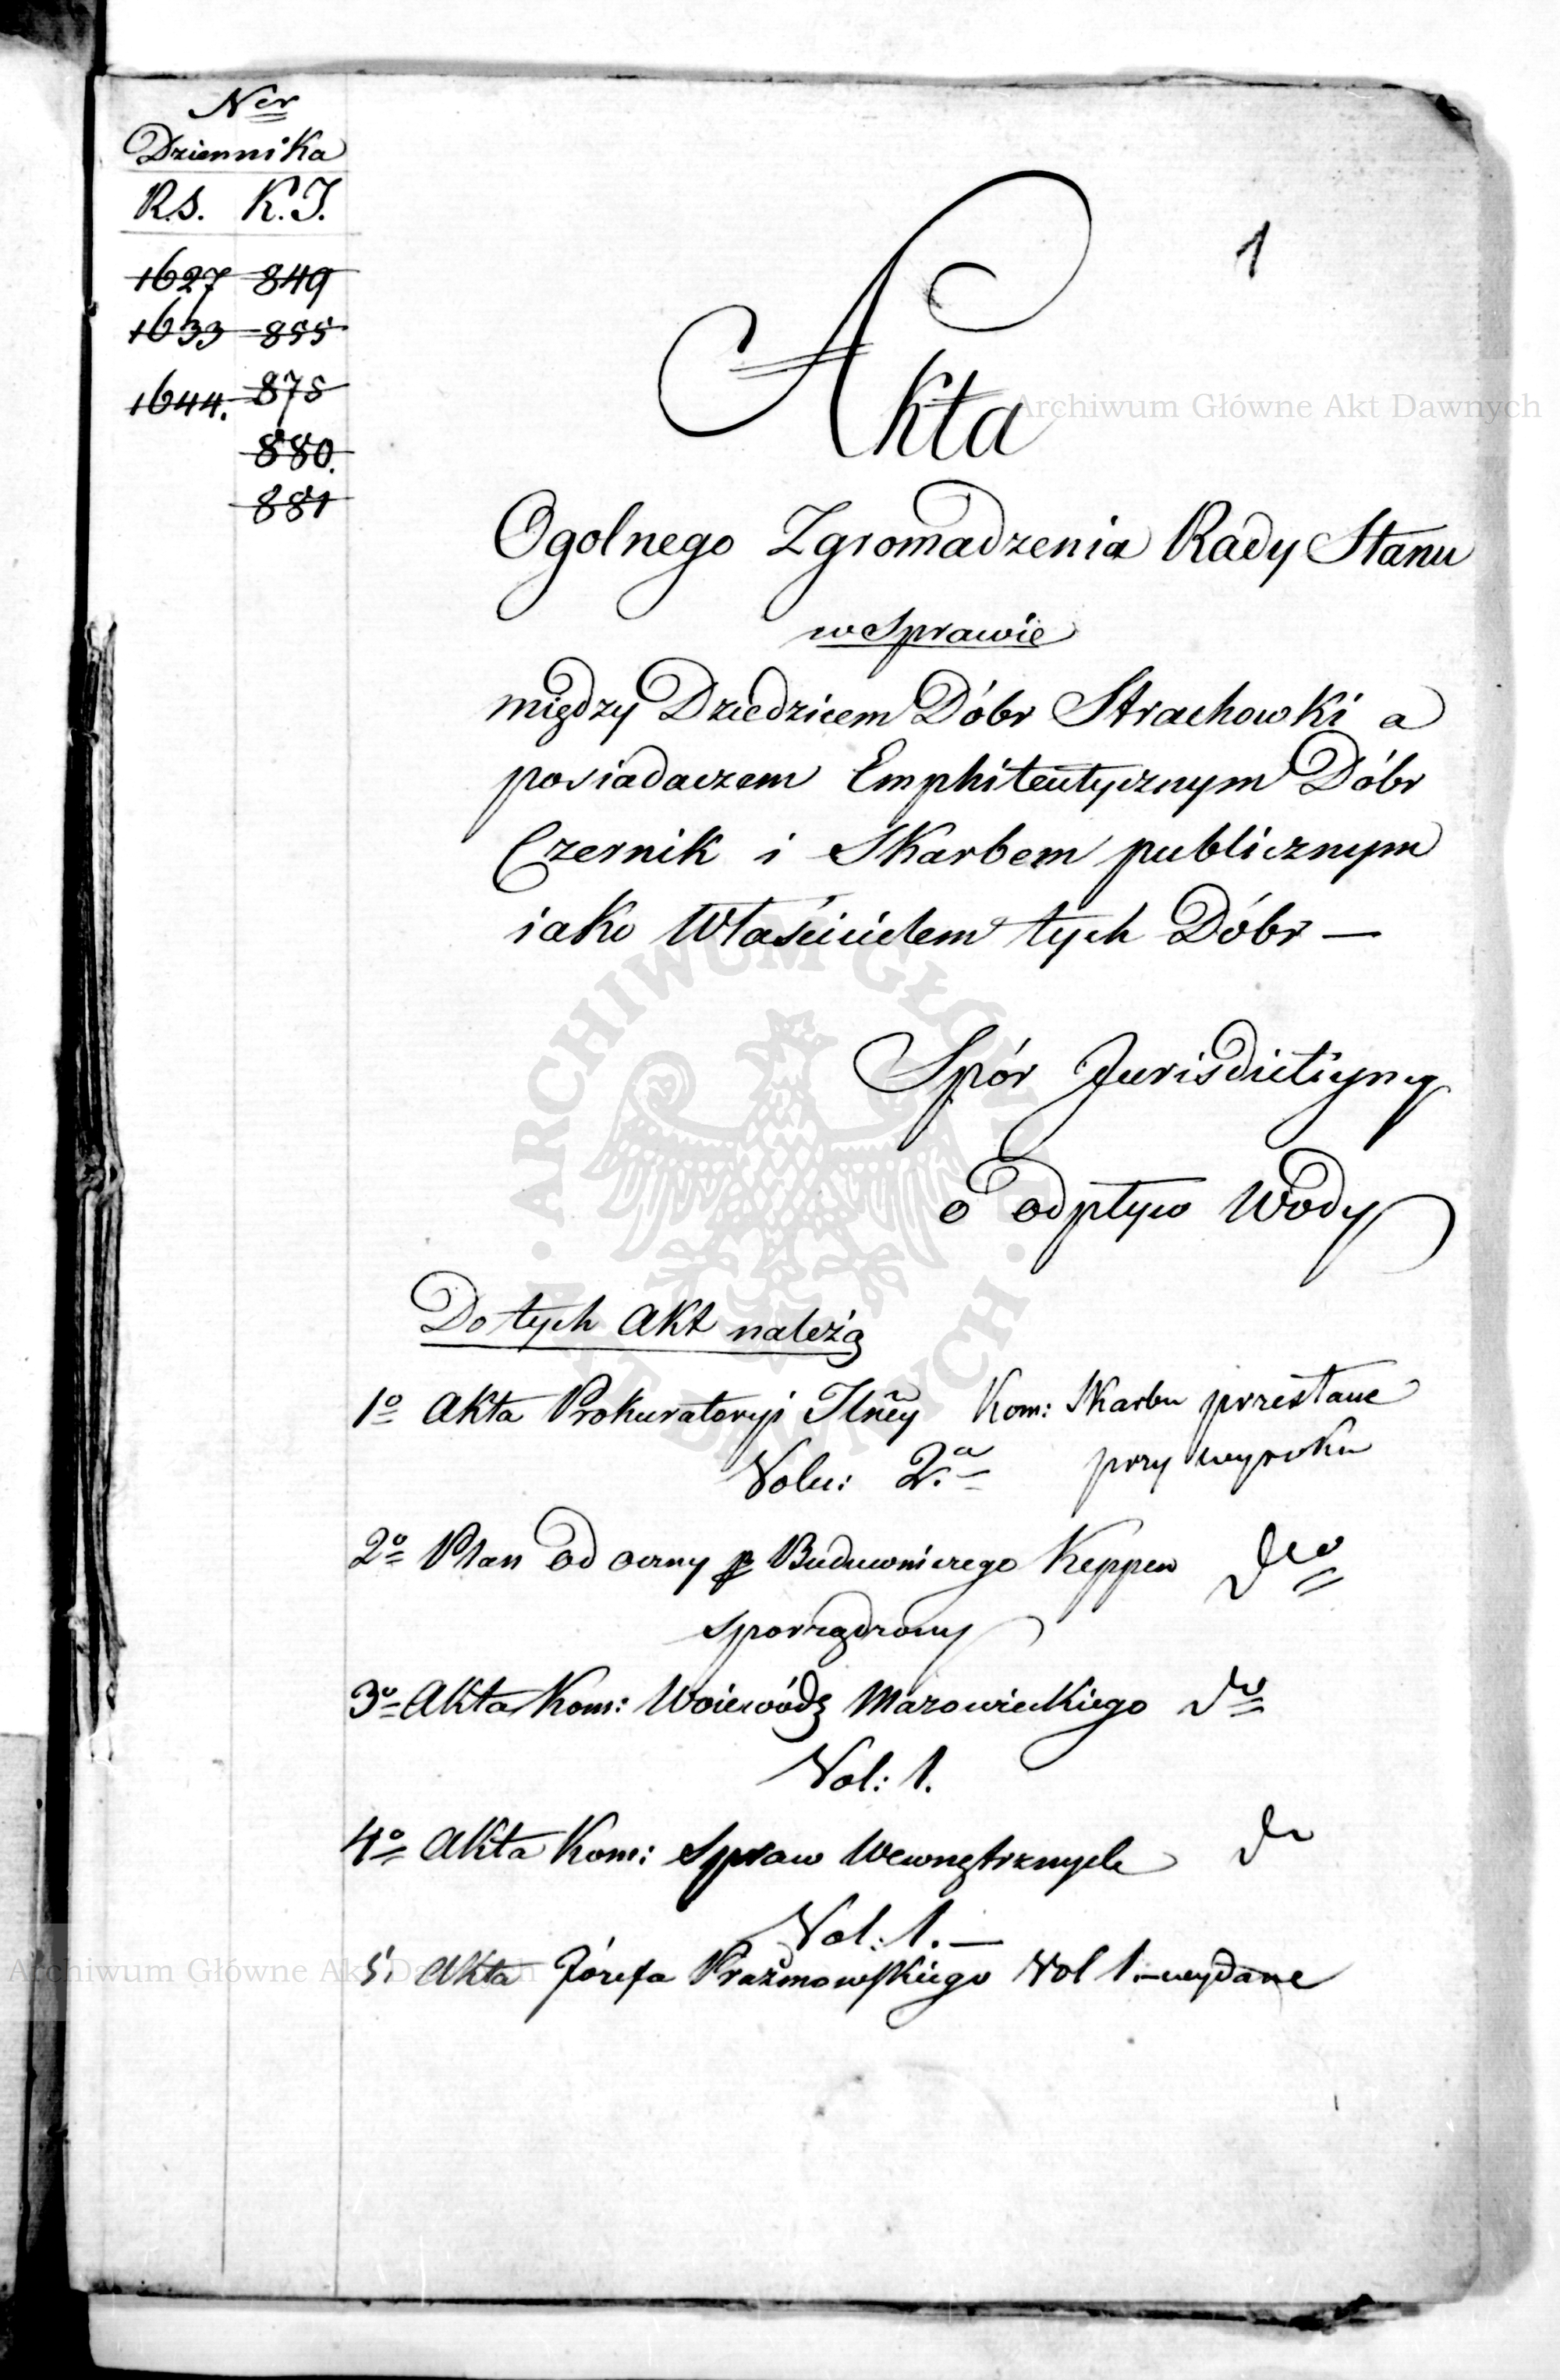 Ner
Dziennika
R.S. K.J.
1627 849
1633 855
1644. 875
880.
881
1
Akta
Ogolnego Zgromadzenia Rady Stanu
w Sprawie
między Dziedzicem Dóbr Strachowki a
posiadaczem Emphiteutycznym Dóbr
Czernik i Skarbem publicznym
iako Właścicielem tych Dóbr —
Spór Jurisdictiyny
o odpływ Wody
Do tych Akt należą
1o Akta Prokuratoryi Kom: Skarbu przesłane
Volu: 2a przy wyroku
2o Plan od oceny p Budowniczego Keppen dto
sporządzony
3o Akta Kom: Woiewódz Mazowieckiego dto
Vol: 1.
4o Akta Kom: Spraw Wewnętrznych do
Vol: 1. —
5. Akta Józefa Prażmowskiego Vol 1. — wydane
Archiwum Główne Akt Dawnych
ARCHIWUM GŁÓWNE AKT DAWNYCH
Archiwum Główne Akt Dawnych